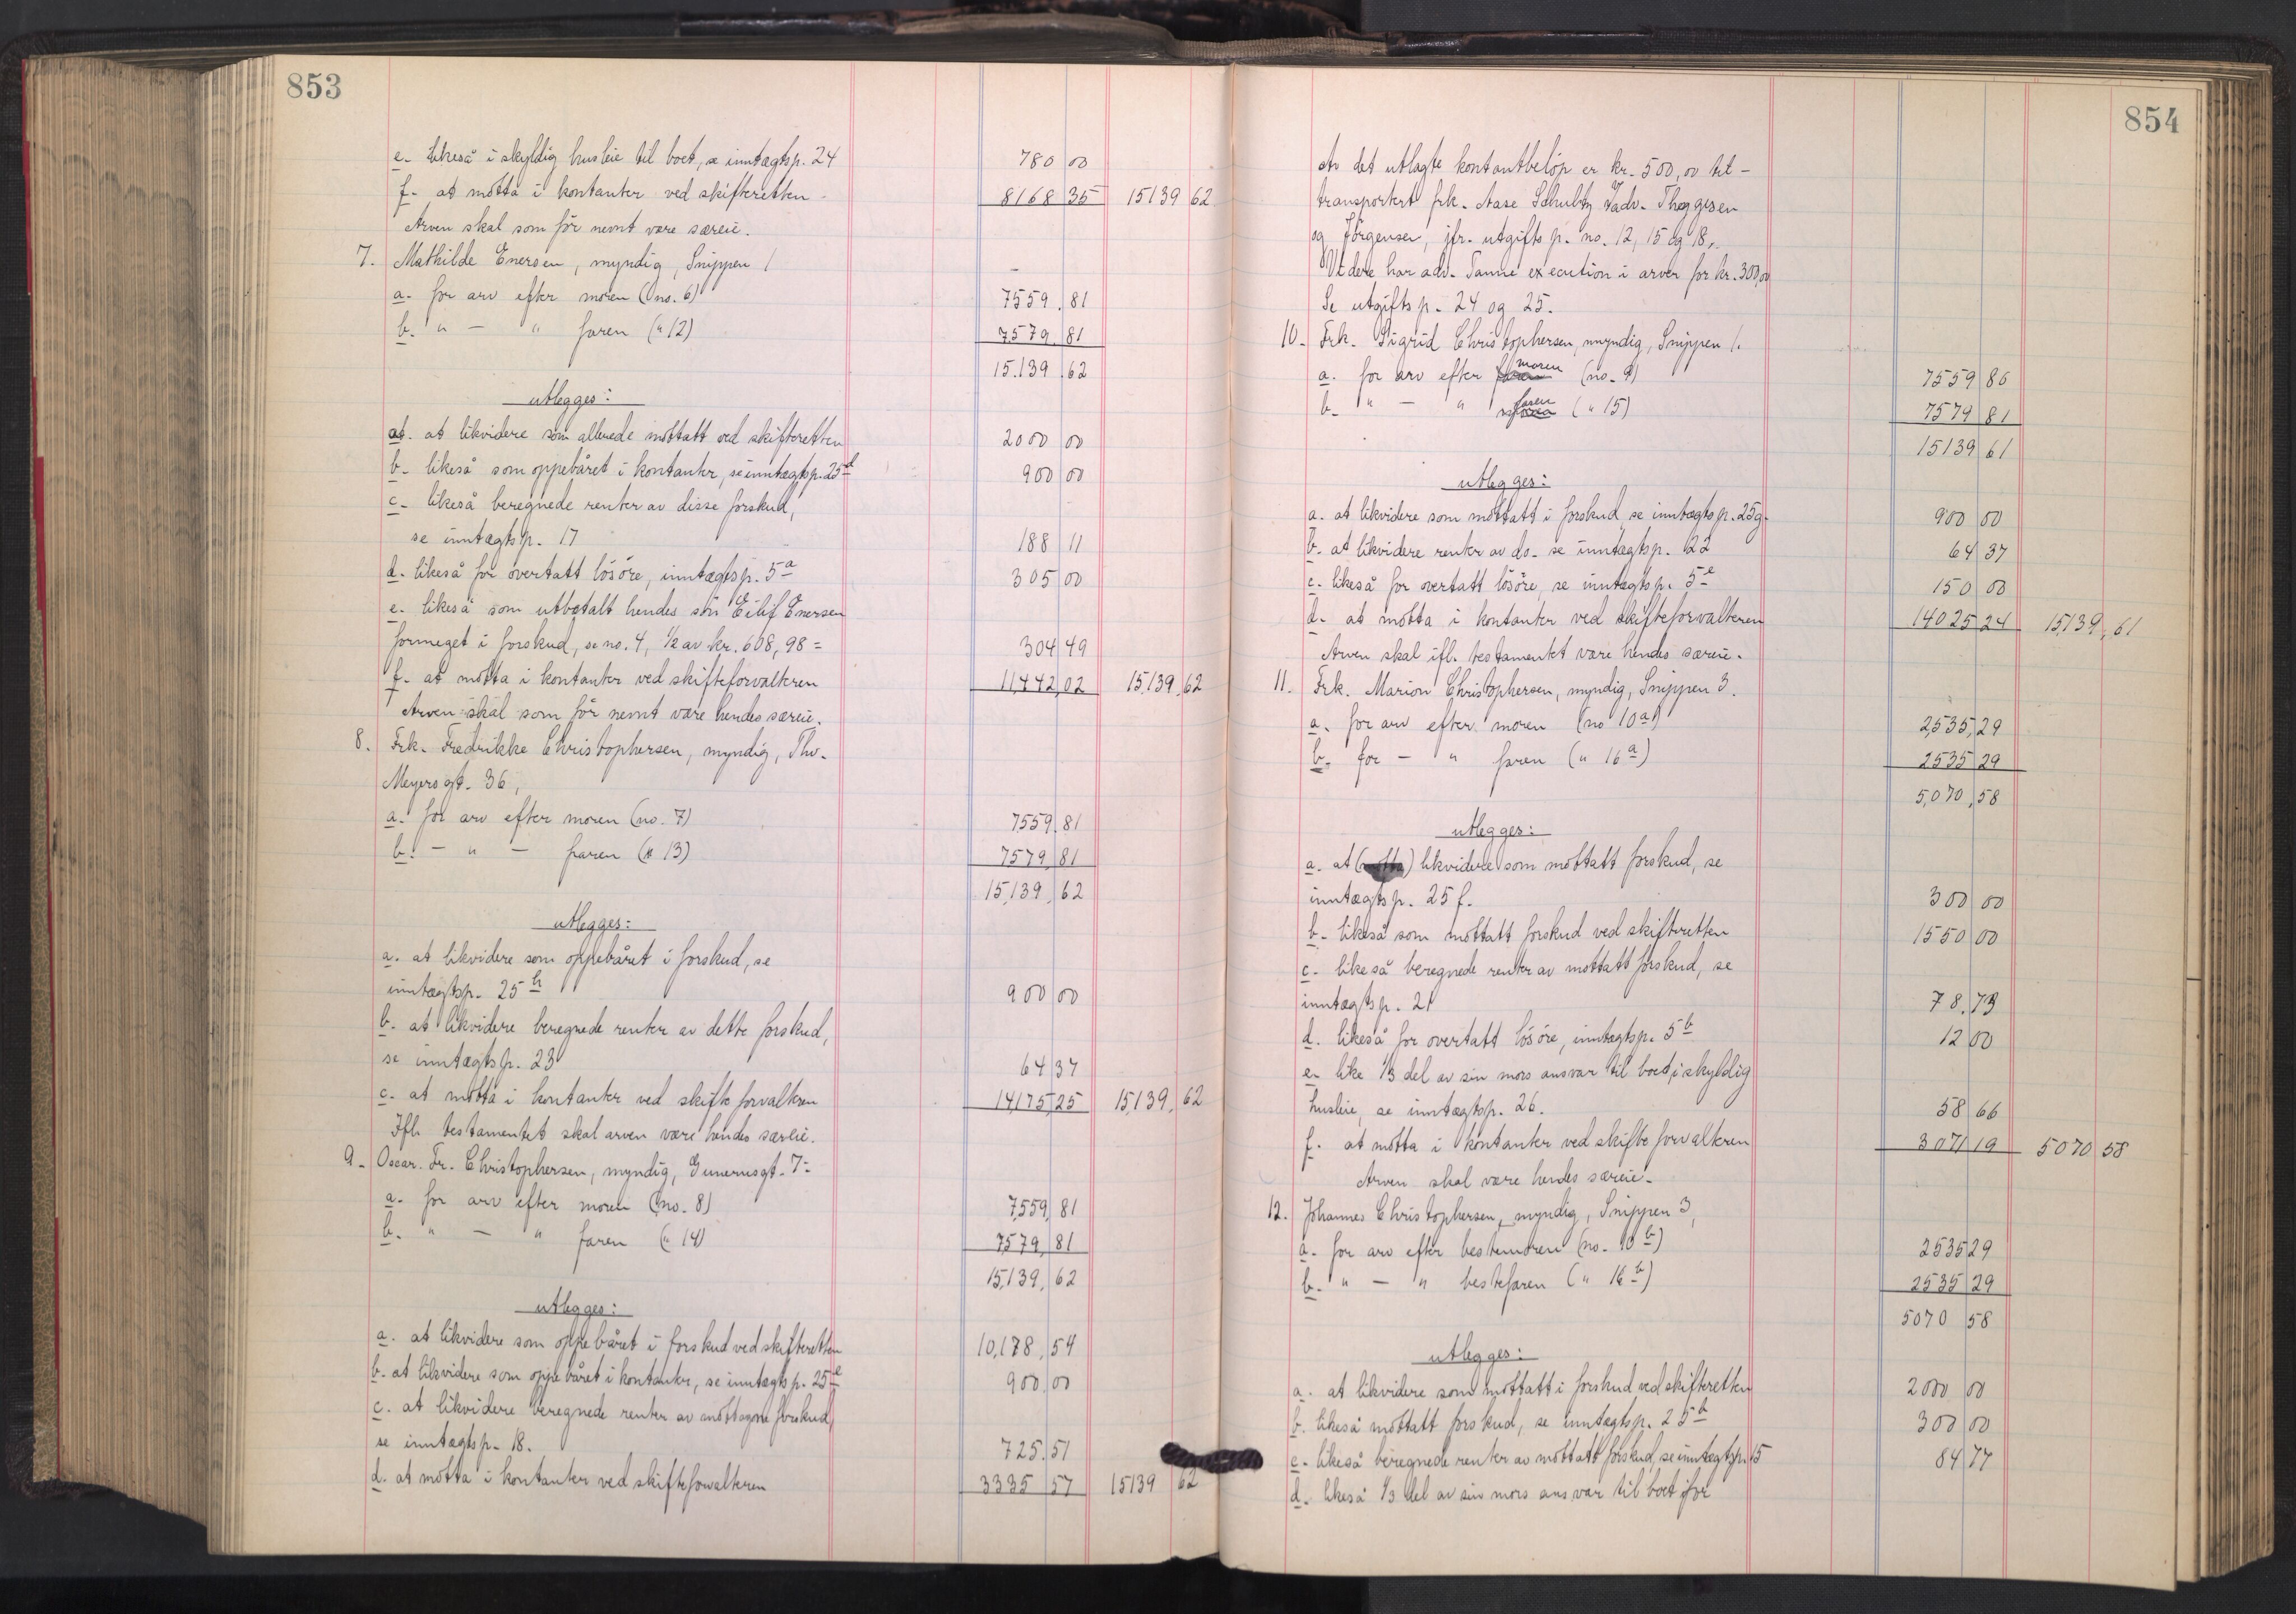 853
e. likeså i skyldig husleie til boet, se inntægtsp. 24 780 00
f. at motta i kontanter ved skifteretten 8168 35 15139 62
Arven skal som før nevnt være særeie.
7. Mathilde Enersen, myndig, Snippen 1
a. for arv efter moren (no. 6) 7559.81
b. " — " faren (" 12) 7579.81
15.139.62
utlegges:
a. at likvidere som allerede mottatt ved skifteretten 2000 00
b. likeså som oppebåret i kontanter, se inntægtsp. 25 d 900 00
c. likeså beregnede renter av disse forskud,
se inntægtsp. 17 188 11
d. likeså for overtatt løsøre, inntægtsp. 5 a 305 00
e. likeså som utbetalt hendes søn Eilif Enersen
formeget i forskud, se no. 4, 1/2 av kr. 608,98 = 304 49
f. at motta i kontanter ved skifteforvalteren 11,442,02 15,139,62
Arven skal som før nevnt være hendes særeie.
8. Frk. Fredrikke Christophersen, myndig, Thv.
Meyersgt. 36,
a. for arv efter moren (no. 7) 7559.81
b. — " — faren (" 13) 7579,81
15,139,62
utlegges:
a. at likvidere som oppebåret i forskud, se
inntægtsp. 25 h 900 00
b. at likvidere beregnede renter av dette forskud,
se inntægtsp. 23 64 37
c. at motta i kontanter ved skifteforvalteren 14,175,25 15,139,62
Ifl. testamentet skal arven være hendes særeie.
9. Oscar Fr. Christophersen, myndig, Gunerusgt. 7.
a. for arv efter moren (no. 8) 7,559,81
b. " — " faren (" 14) 7579,81
15,139,62
utlegges:
a. at likvidere som oppebåret i forskud ved skifteretten 10,178,54
b. at likvidere som oppebåret i kontanter, se inntægtsp. 25 e 900,00
c. at likvidere beregnede renter av mottagne forskud,
se inntægtsp. 18. 725.51
d. at motta i kontanter ved skifteforvalteren 3335 57 15139 62
854
Av det utlagte kontantbeløp er kr. 500,00 til-
transportert frk. Aase Schultz, adv. Thoggesen
og Jørgensen, jfr. utgiftsp. no. 12, 15 og 18,
Videre har adv. execution i arven for kr. 300,00
Se utgiftsp. 24 og 25.
10. Frk. Sigrid Christophersen, myndig, Snippen 1.
a. for arv efter moren (no. 9) 7559 80
b. " — " faren (" 15) 7579 81
15139 61
utlegges:
a. at likvidere som mottatt i forskud, se inntægtsp. 25g. 900 00
b. at likvidere renter av do. se inntægtsp. 22 64 37
c. likeså for overtatt løsøre, se inntægtsp. 5 e 150 00
d. at motta i kontanter ved skifteforvalteren 14025 24 15,139,61
Arven skal ifl. testamentet være hendes særeie.
11. Frk. Marion Christophersen, myndig, Snippen 3.
a. for arv efter moren (no 10 a) 2,535,29
b. for — " faren (" 16 a) 2535 29
5,070,58
utlegges:
a. at (motta) likvidere som mottatt forskud, se
inntægtsp. 25 f. 300 00
b. likeså som mottatt forskud ved skifteretten 1550 00
c. likeså beregnede renter av mottatt forskud, se
inntægtsp. 21 78,73
d. likeså for overtatt løsøre, inntægtsp. 5 b 12 00
e. like 1/3 del av sin mors ansvar til boet, i skyldig
husleie, se inntægtsp. 26. 58 66
f. at motta i kontanter ved skifteforvalteren 3071 19 5070 58
Arven skal være hendes særeie.
12. Johannes Christophersen, myndig, Snippen 3,
a. for arv efter bestemoren (no. 10 b) 2535 29
b. " — " bestefaren (" 16 b) 2535 29
5070 58
utlegges:
a. at likvidere som mottatt i forskud ved skifteretten 2000 00
b. likeså mottatt forskud, se inntægtsp. 25 b 300 00
c. likeså beregnede renter av mottatt forskud, se inntægtsp. 15 84 77
d. likeså 1/3 del av sin mors ansvar til boet for